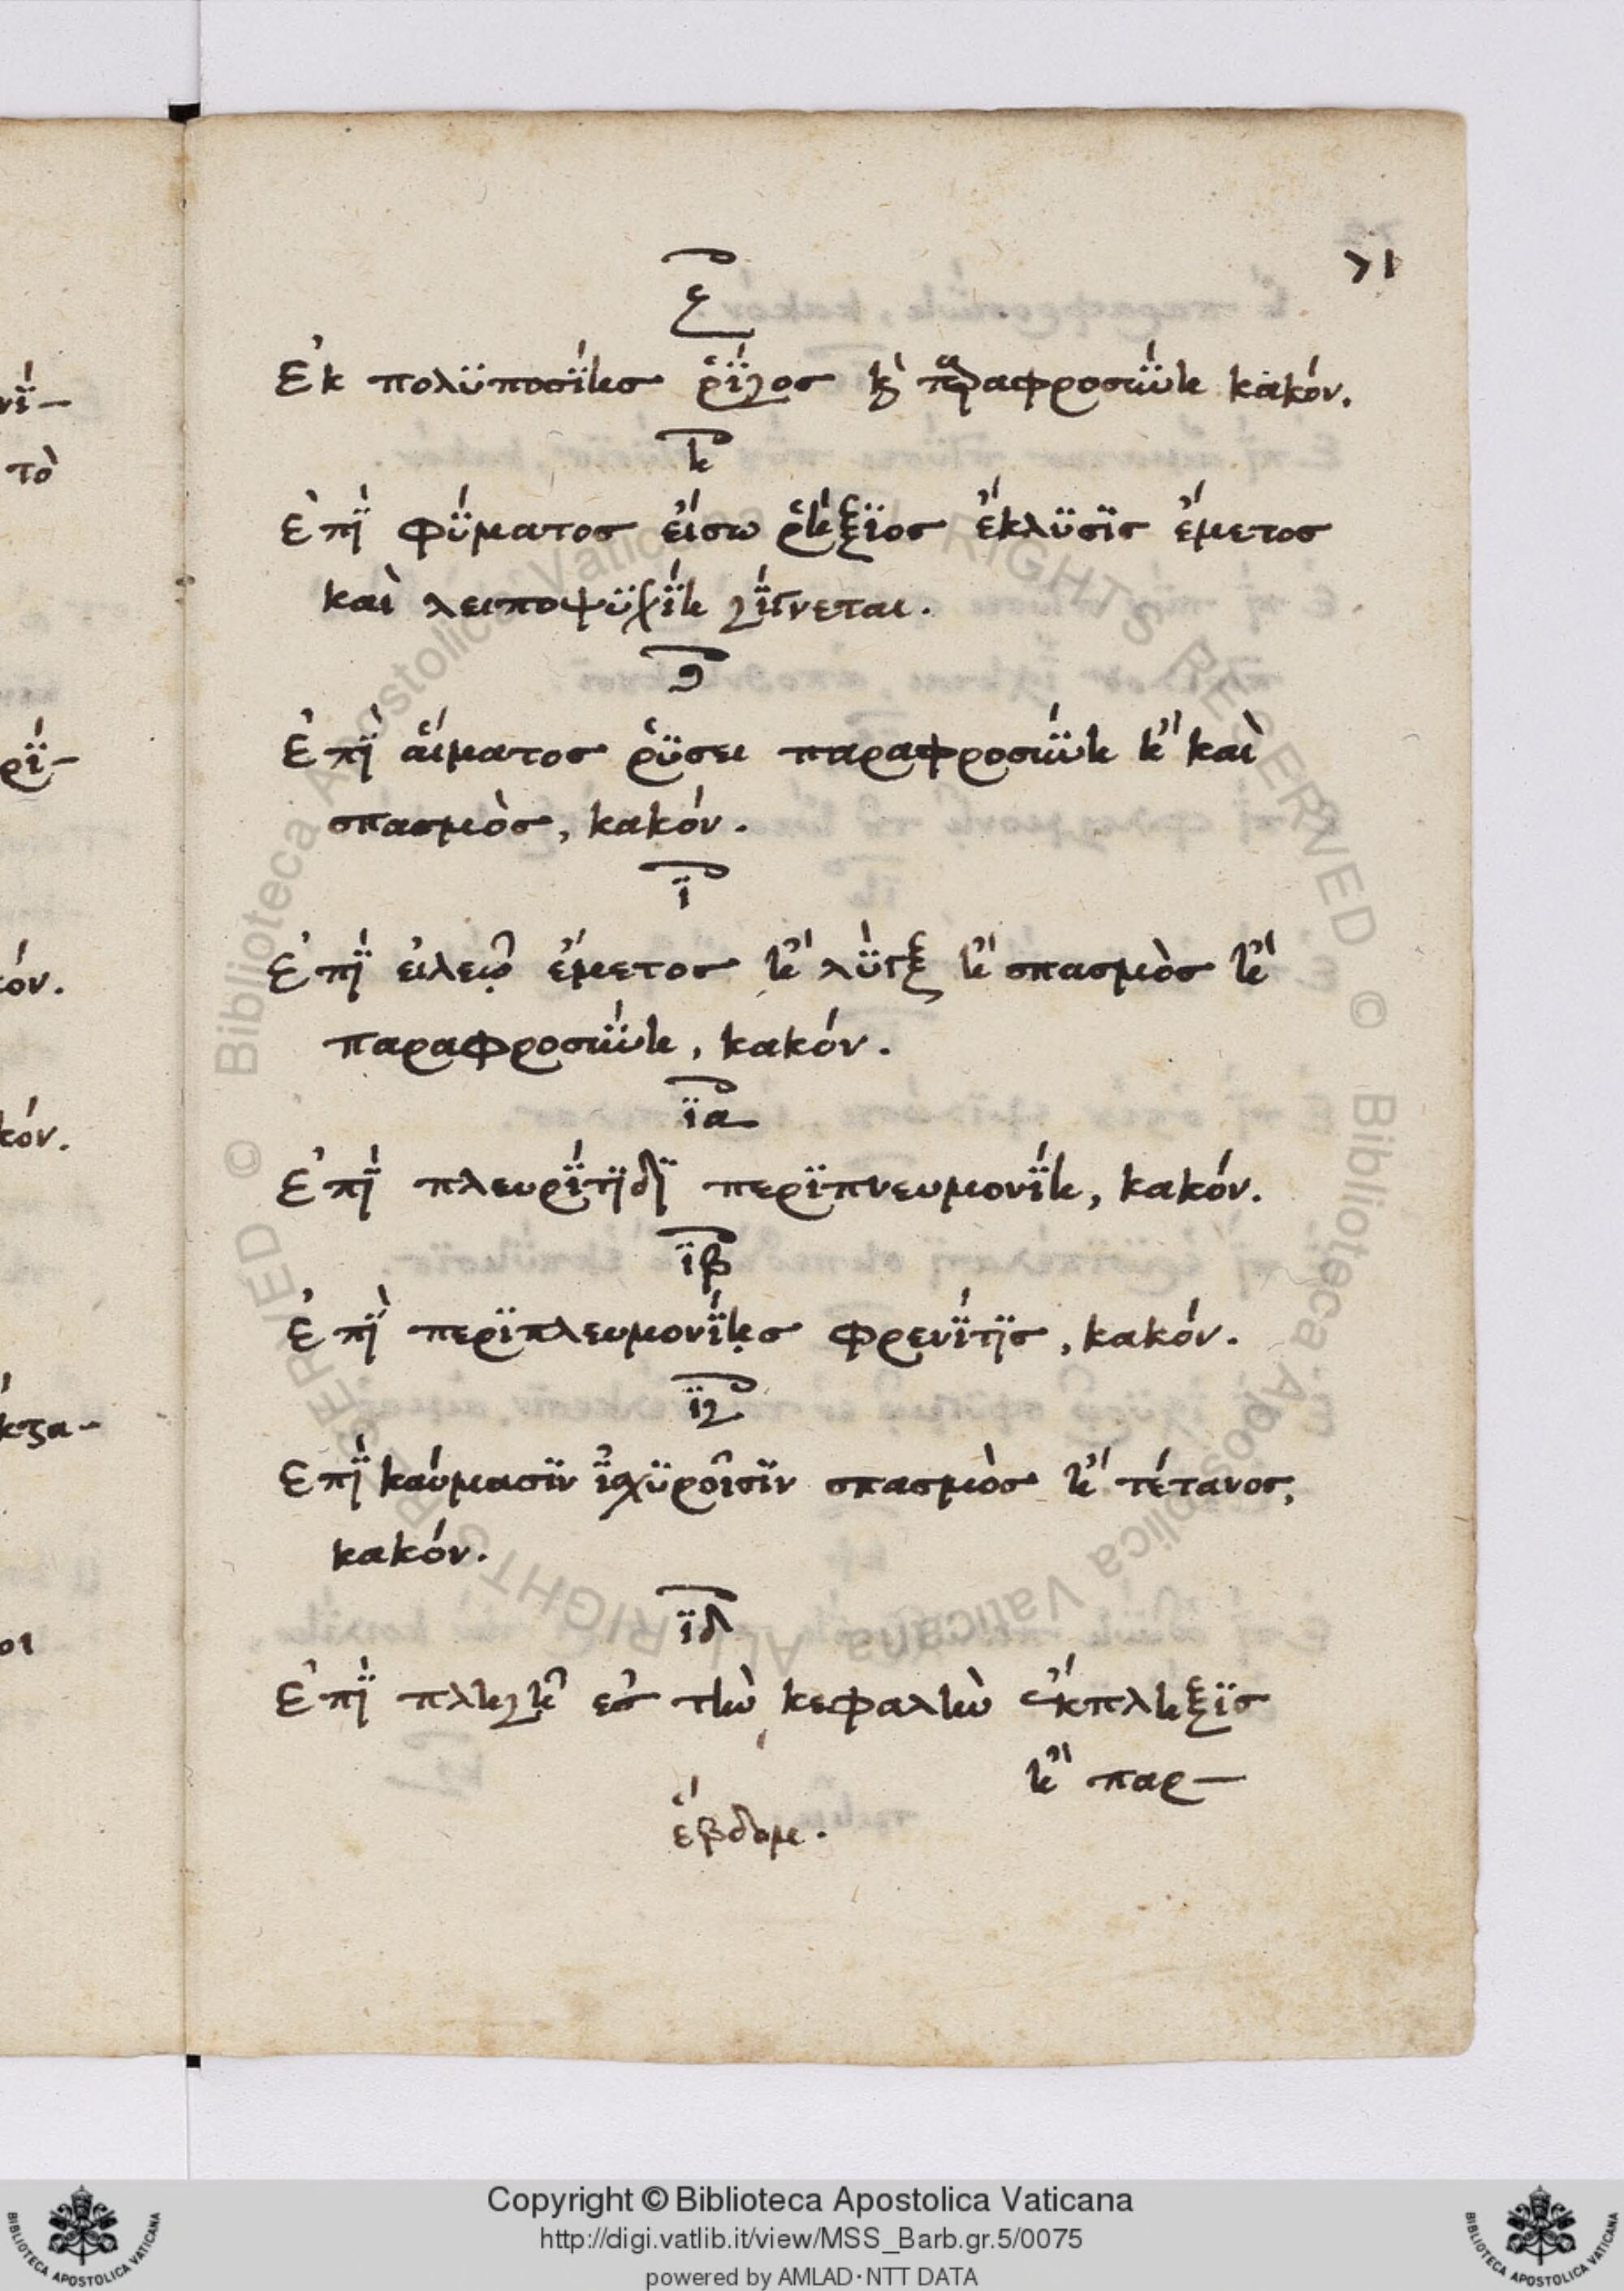 71
ζ
Ἐκ πολϋποσΐης ῥΐγος κ̀ παραφροσΰνη κακόν.
η
Ἐπῒ φΰματος εἴσω ῥήξϊος ἔκλϋσϊς ἔμετος
καὶ λειποψϋχΐη γΐγνεται.
θ
Ἐπῒ αἵματος ῥΰσει παραφροσΰνη ἢ καὶ
σπασμὸς, κακόν.
ϊ
Ἐπῒ εἰλεῷ ἔμετος ἢ λΰγξ ἢ σπασμὸς ἢ
παραφροσΰνη, κακόν.
ϊα
Ἐπῒ πλευρΐτϊδϊ περϊπνευμονΐη, κακόν.
ϊβ
Ἐπῒ περϊπλευμονΐης φρενΐτϊς, κακόν.
ϊγ
Ἐπῒ καύμασϊν ἰσχϋροῖσϊν σπασμὸς ἢ τέτανος,
κακόν.
ϊδ
Ἐπῒ πληγῇ ἐς τὴν κεφαλὴν ἔκπληξϊς
ἢ παρ-
ἕβδομ.
νΐ-
τὸ
ρΐ-
κόν.
κόν.
οι
© Biblioteca Apostolica Vaticana ALL RIGHTS RESERVED
Copyright © Biblioteca Apostolica Vaticana
http://digi.vatlib.it/view/MSS_Barb.gr.5/0075
powered by AMLAD·NTT DATA
BIBLIOTECA APOSTOLICA VATICANA
BIBLIOTECA APOSTOLICA VATICANA